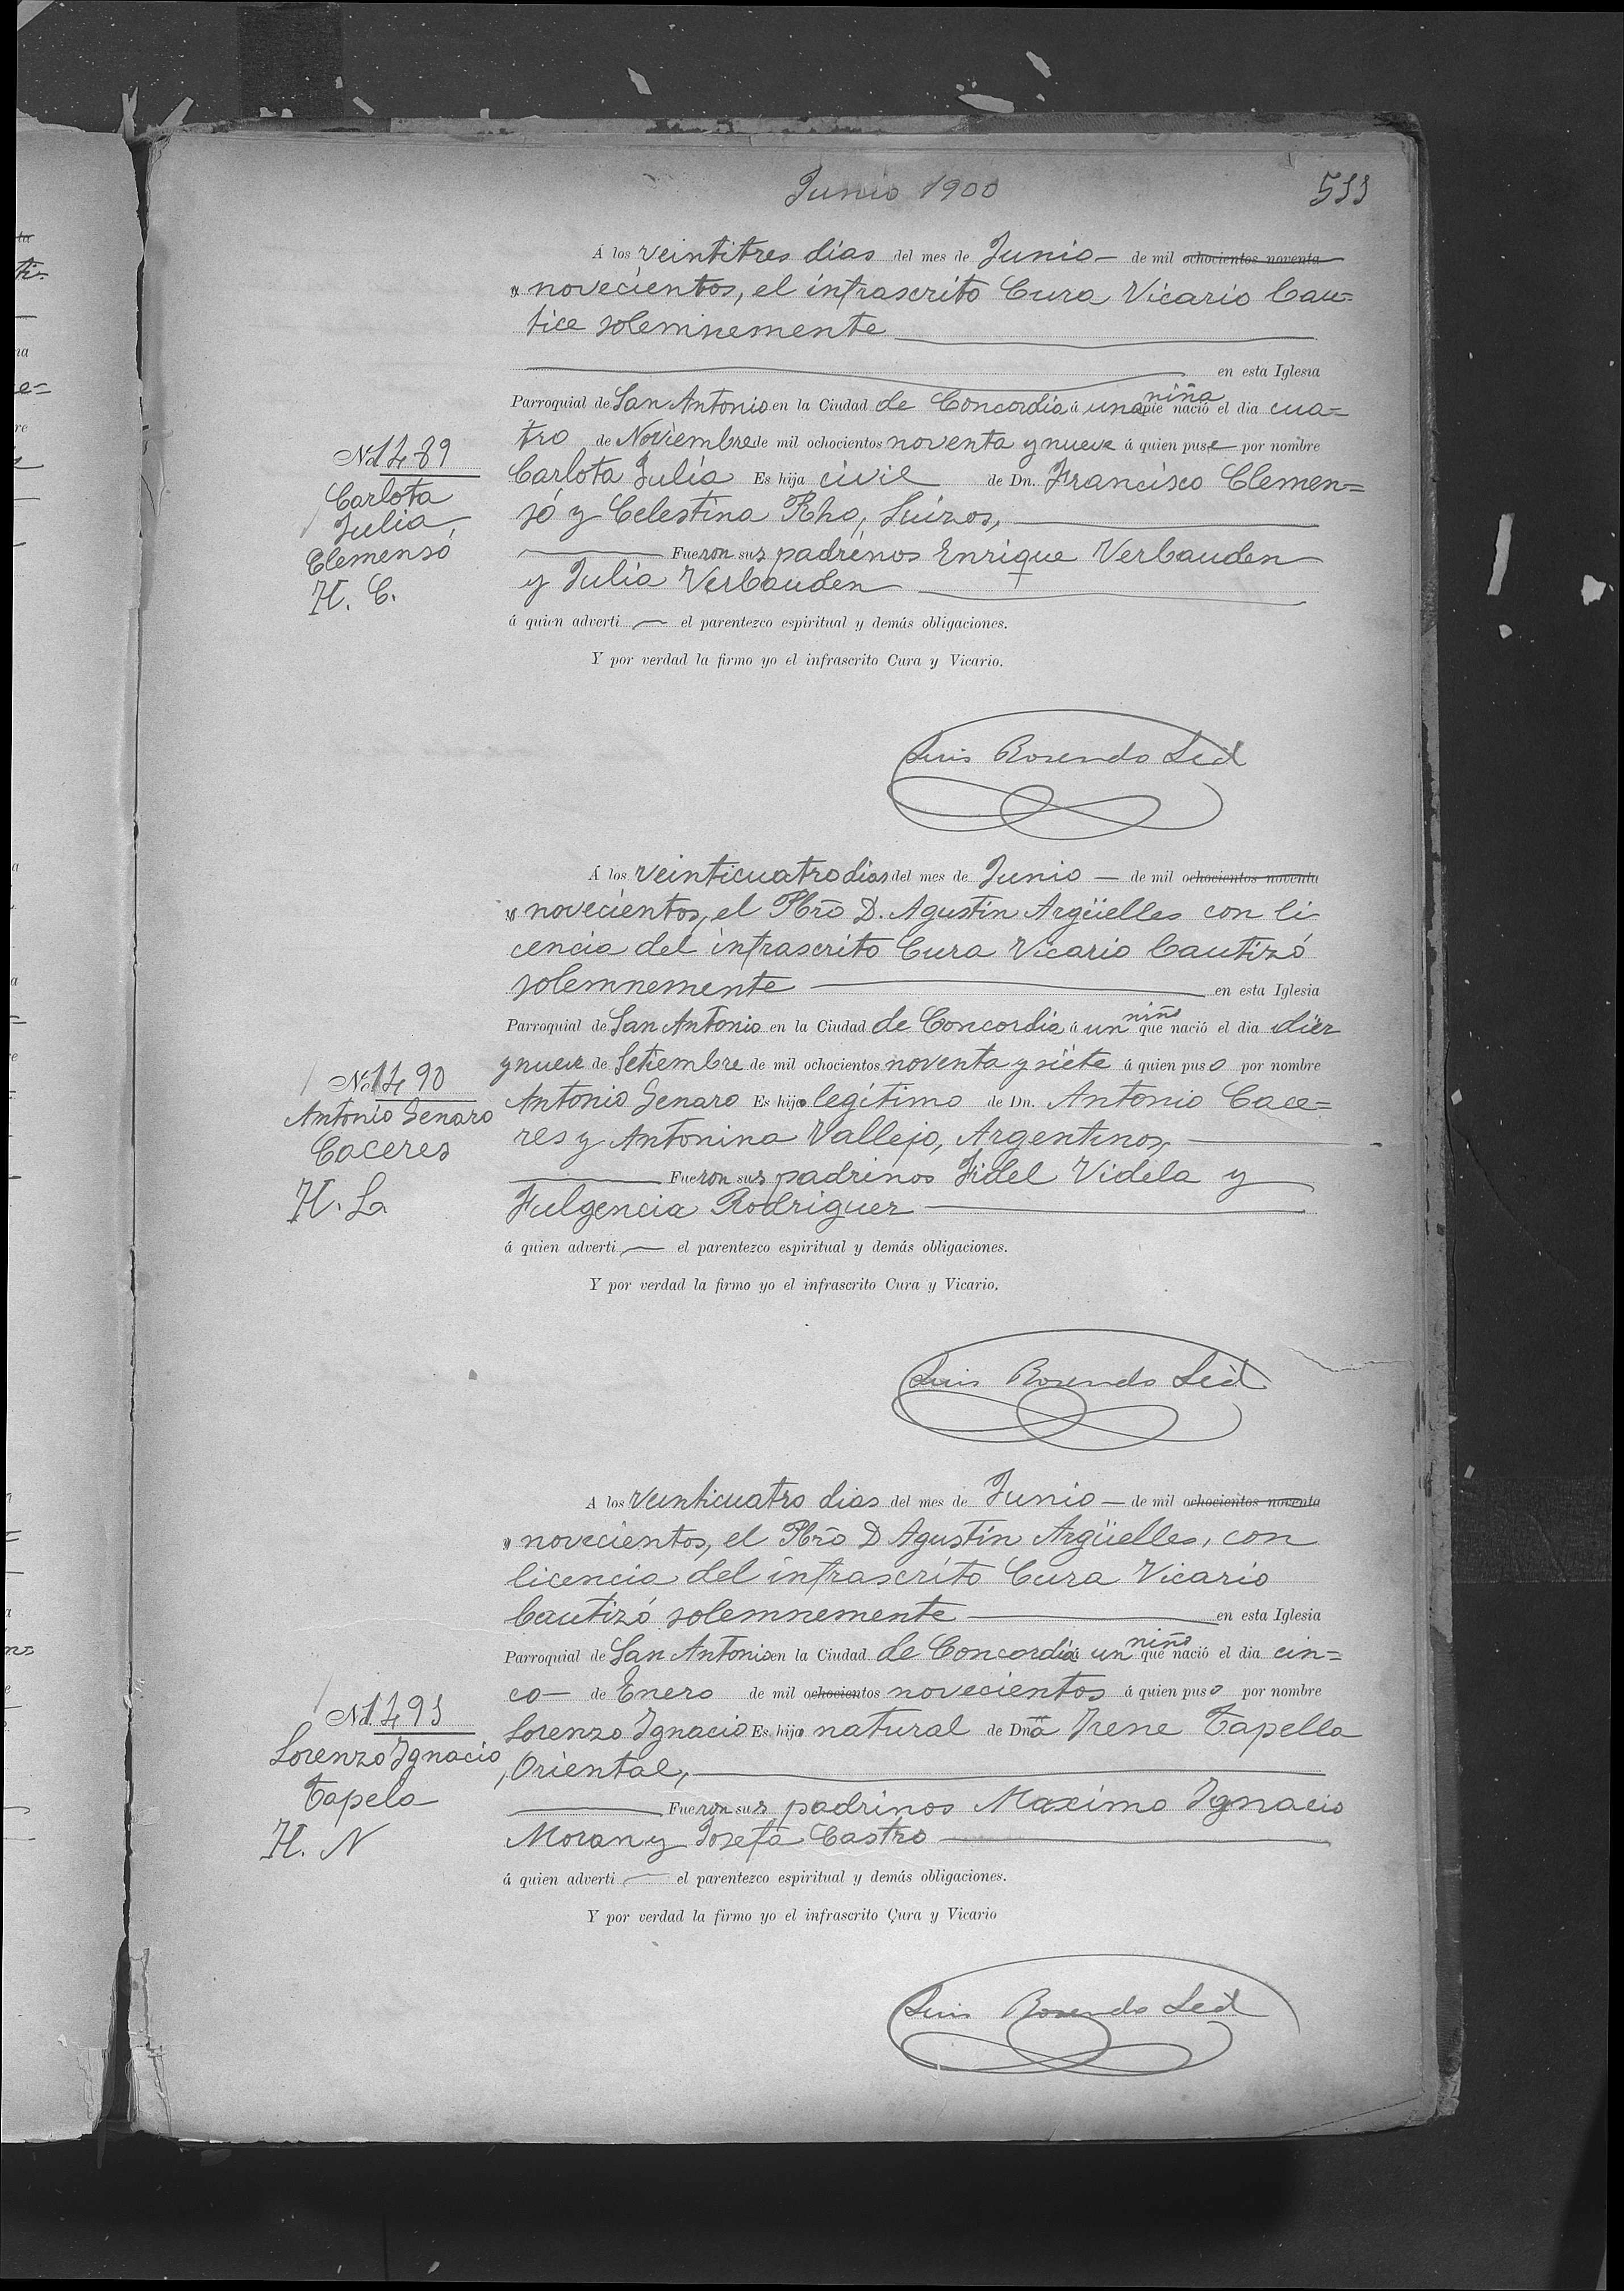 Junio 1900
511
Á los veintitres dias del mes de Junio— de mil ochocientos noventa
novecientos, el infrascrito Cura Vicario bau=
tice solemnemente
en esta Iglesia
Parroquial de San Antonio en la Ciudad de Concordia á una niña que nació el dia cua=
tro de Noviembre de mil ochocientos noventa y nueve á quien puse por nombre
Carlota Julia Es hija civil de Dn. Francisco Clemen=
só y Celestina Rho, Suizos,
Fueron sus padrinos Enrique Verbauden
y Julia Verbauden
á quien adverti el parentezco espiritual y demás obligaciones.
Y por verdad la firmo yo el infrascrito Cura y Vicario.
No. 1489
Carlota
Julia
Clemensó
H. C.
Luis Rosendo Leal
Á los veinticuatro dias del mes de Junio — de mil ochocientos noventa
novecientos, el Pbro D. Agustin Argüelles con li
cencia del infrascrito Cura Vicario bautizó
solemnemente en esta Iglesia
Parroquial de San Antonio en la Ciudad de Concordia á un niño que nació el dia diez
y nueve de Setiembre de mil ochocientos noventa y siete á quien puso por nombre
Antonio Genaro Es hijo legitimo de Dn. Antonio Cace=
res y Antonina Vallejo, Argentinos,
Fueron sus padrinos Fidel Videla y
Fulgencia Rodriguez
á quien adverti el parentezco espiritual y demás obligaciones.
Y por verdad la firmo yo el infrascrito Cura y Vicario.
No. 1490
Antonio Genaro
Caceres
H. La
Luis Rosendo Leal
A los veinticuatro dias del mes de Junio — de mil ochocientos noventa
novecientos, el Pbro D Agustin Argüelles, con
licencia del infrascrito Cura Vicario
bautizó solemnemente en esta Iglesia
Parroquial de San Antonio en la Ciudad de Concordia á un niño que nació el dia cin=
co— de Enero de mil ochocientos novecientos á quien puso por nombre
Lorenzo Ygnacio Es hijo natural de Dnã Irene Tapella
, Oriental,
Fueron sus padrinos Maximo Ygnacio
Moran y Josefa Castro
á quien adverti el parentezco espiritual y demás obligaciones.
Y por verdad la firmo yo el infrascrito Cura y Vicario
No. 1491
Lorenzo Ygnacio
Tapela
H. N
Luis Rosendo Leal